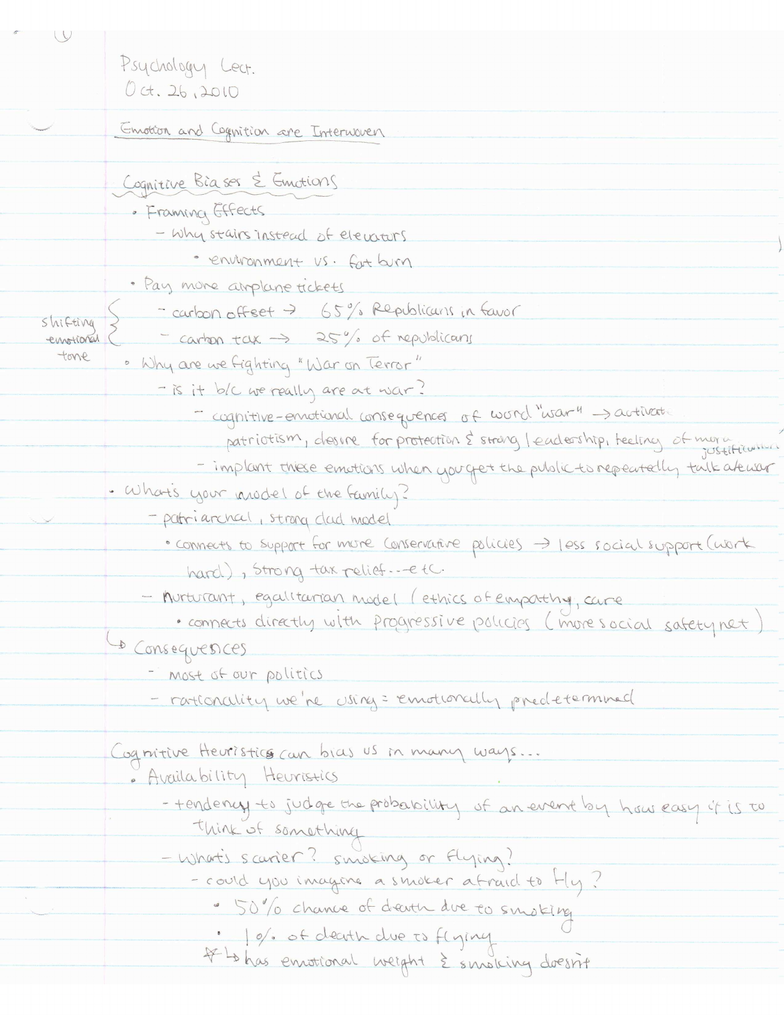 ①
Psychology Lect.
Oct. 26, 2010
Emotion and Cognition are Interwoven
Cognitive Biases & Emotions
• Framing Effects
- Why stairs instead of elevators
• environment vs. fat burn
• Pay more airplane tickets
shifting emotional tone
- carbon offset → 65% Republicans in favor
- carbon tax → 25% of republicans
• Why are we fighting "War on Terror"
- is it b/c we really are at war?
- cognitive-emotional consequences of word "war" → activat
patriotism, desire for protection & strong leadership, feeling of more
justification
- implant these emotions when you get the public to repeatedly talk at war
• What's your model of the family?
- patriarchal, strong dad model
• connects to support for more conservative policies → less social support (work
hard), strong tax relief...etc.
- nurturant, egalitarian model / ethics of empathy, care
• connects directly with progressive policies (more social safety net)
↳ Consequences
- most of our politics
- rationality we're using = emotionally predetermined
Cognitive Heuristics can bias us in many ways...
• Availability Heuristics
- tendency to judge the probability of an event by how easy it is to
think of something
- What's scarier? smoking or flying?
- could you imagine a smoker afraid to fly?
• 50% chance of death due to smoking
• 1% of death due to flying
☆ ↳ has emotional weight & smoking doesn't